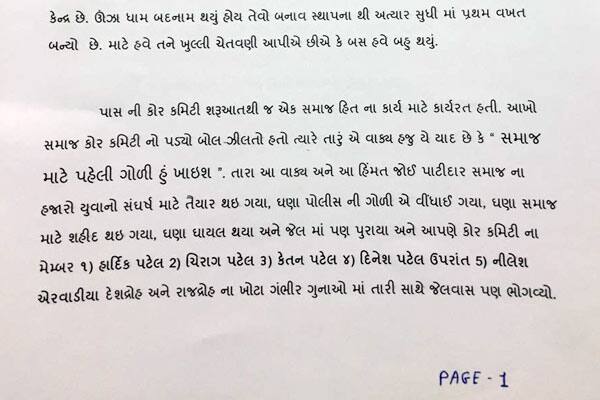 કેન્દ્ર છે. ઊંઝા ધામ બદનામ થયું હોય તેવો બનાવ સ્થાપના થી અત્યાર સુધી માં પ્રથમ વખત
બન્યો છે. માટે હવે તને ખુલ્લી ચેતવણી આપીએ છીએ કે બસ હવે બહુ થયું.
પાસ ની કોર કમિટી શરૂઆતથી જ એક સમાજ હિત ના કાર્ય માટે કાર્યરત હતી. આખો
સમાજ કોર કમિટી નો પડ્યો બોલ ઝીલતો હતો ત્યારે તારું એ વાક્ય હજુ યે યાદ છે કે “ સમાજ
માટે પહેલી ગોળી હું ખાઇશ ”. તારા આ વાક્ય અને આ હિંમત જોઈ પાટીદાર સમાજ ના
હજારો યુવાનો સંઘર્ષ માટે તૈયાર થઇ ગયા, ઘણા પોલીસ ની ગોળી એ વીંધાઈ ગયા, ઘણા સમાજ
માટે શહીદ થઇ ગયા, ઘણા ઘાયલ થયા અને જેલ માં પણ પુરાયા અને આપણે કોર કમિટી ના
મેમ્બર ૧) હાર્દિક પટેલ 2) ચિરાગ પટેલ 3) કેતન પટેલ ૪) દિનેશ પટેલ ઉપરાંત 5) નીલેશ
એરવાડીયા દેશદ્રોહ અને રાજદ્રોહ ના ખોટા ગંભીર ગુનાઓ માં તારી સાથે જેલવાસ પણ ભોગવ્યો.
PAGE - 1